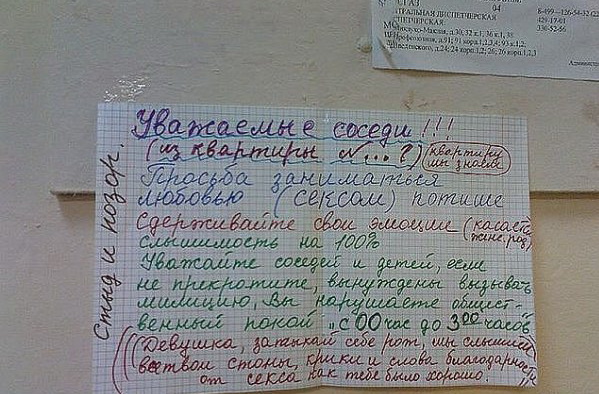 ГАЗ
04
8-499-126-54-32
ТРАЛЬНАЯ ДИСПЕТЧЕРСКАЯ
429-17-01
ПЕТЧЕРСКАЯ
330-52-66
Администр
Стыд и позор.
Уважаемые соседи!!!
(из квартиры №...?) (квартиру мы знаем)
Просьба заниматься
любовью (сексом) потише
Сдерживайте свои эмоции (касается женс. род)
слышимость на 100%
Уважайте соседей и детей, если
не прекратите, вынуждены вызывать
милицию, Вы нарушаете общест-
венный покой „с 00 час до 3 00 часов"
(Девушка, затыкай себе рот, мы слышим
все твои стоны, крики и слова благодарности
от секса как тебе было хорошо.